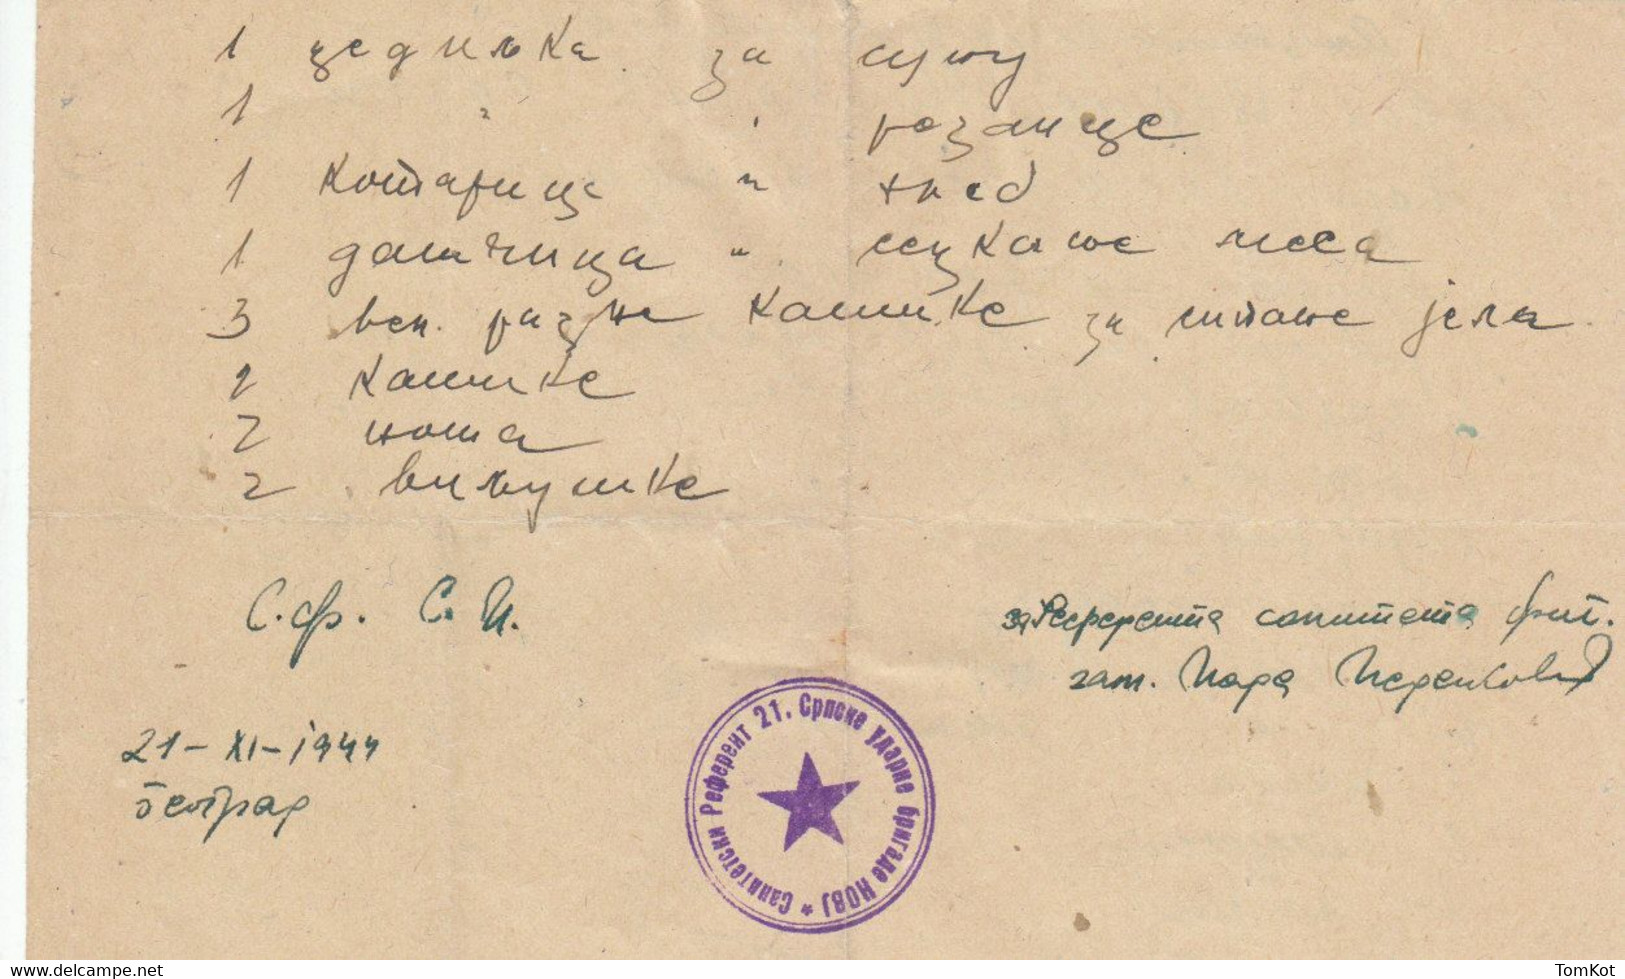 1 цедиљка за супу
1 " " резанце
1 котарица " хлеб
1 дашчица " сецкање меса
3 вел. разне кашике за сипање јела
2 кашике
2 ножа
2 виљушке
С.Ф. С.Н.
за Референта санитета
зам. Мара
21-XI-1944
Београд
Санитетски Референт 21. Српске ударне бригаде НОВЈ *
www.delcampe.net
TomKot